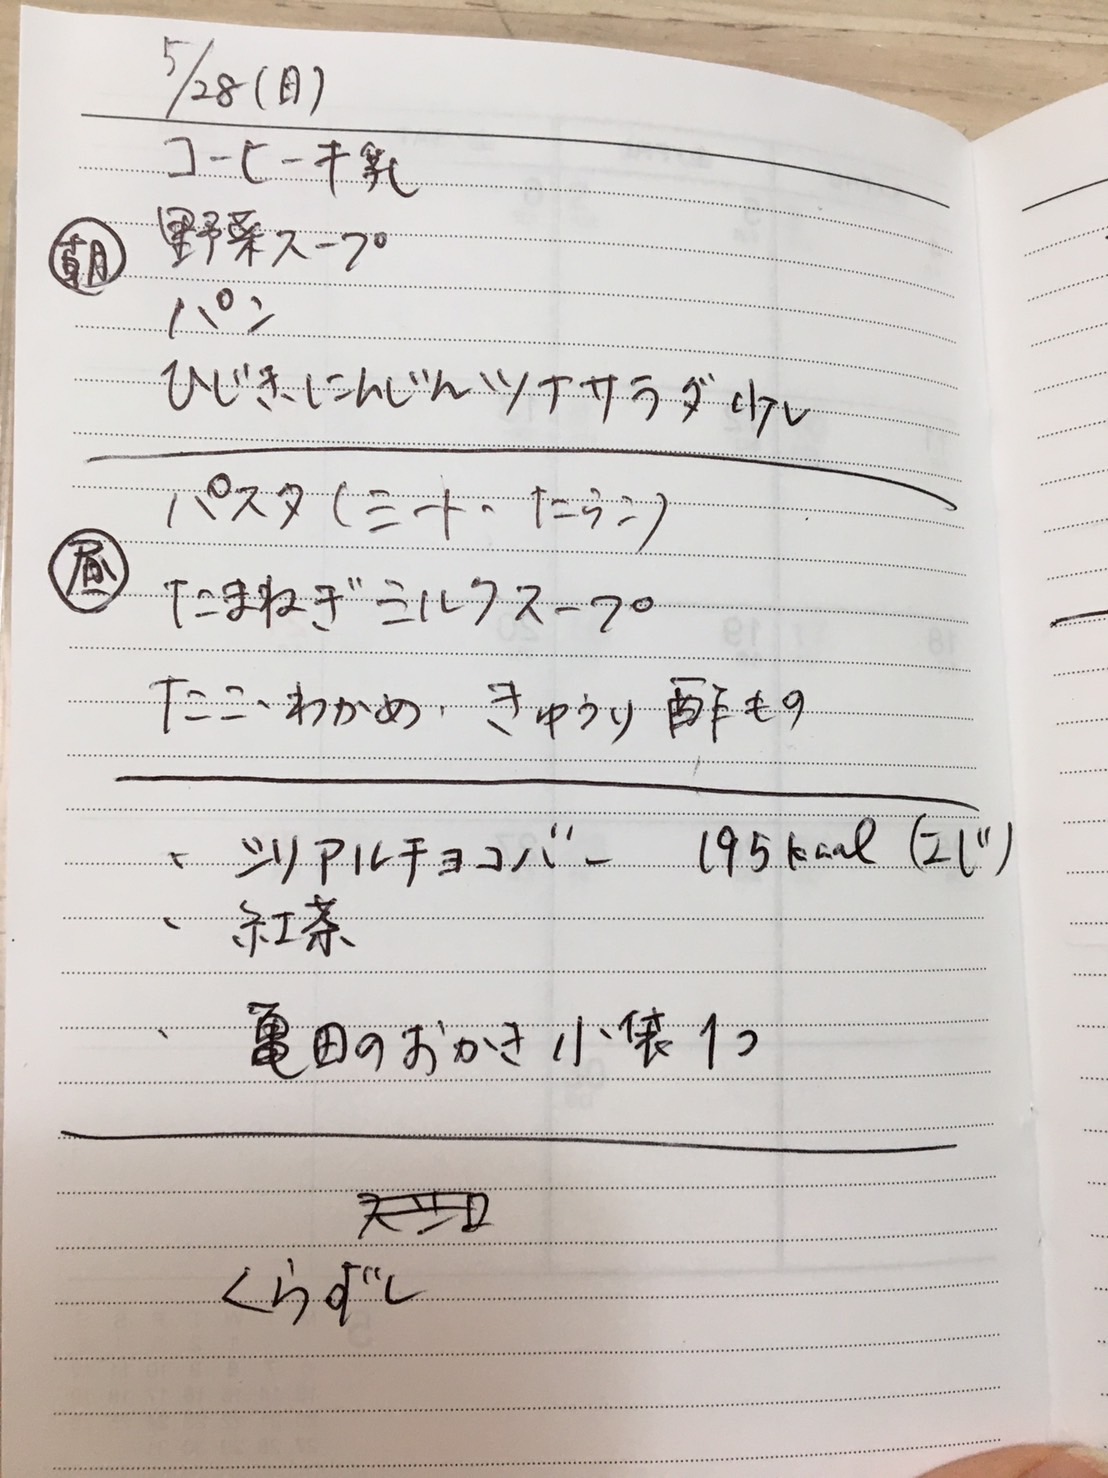 5/28(日)
コーヒー牛乳
朝 野菜スープ
パン
ひじきにんじんツナサラダ 少し
パスタ(ミート・たらこ)
昼
たまねぎミルクスープ
たこ・わかめ・きゅうり 酢もの
・ シリアルチョコバー 195kcal (2じ)
・ 紅茶
・ 亀田のおかき 小袋 1つ
くらずし